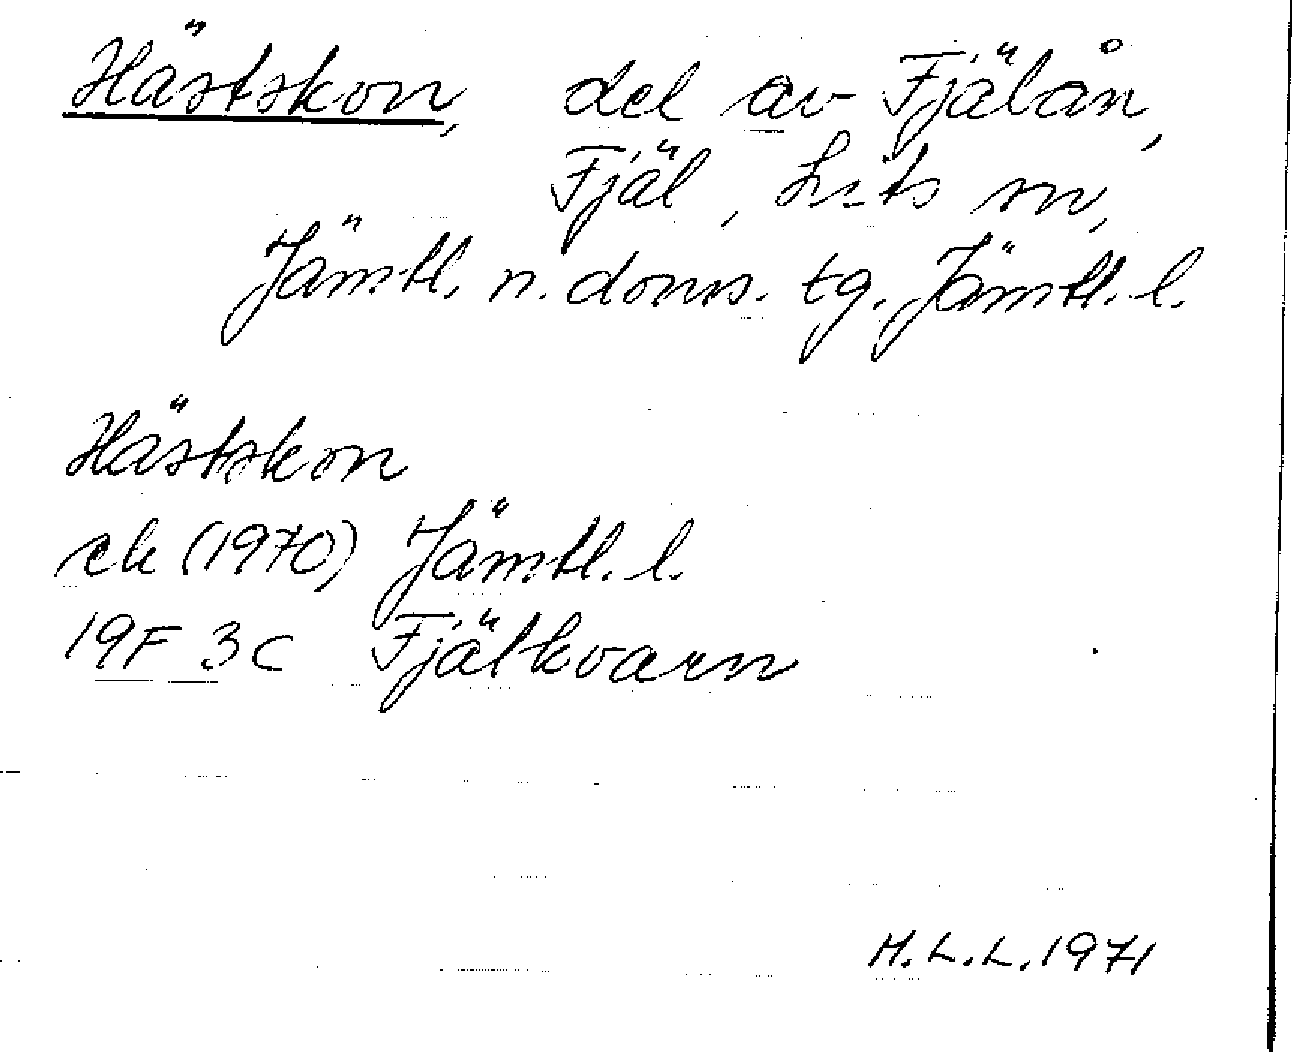 Hästskon, del av Fjälån,
Fjäl, Lits sn,
Jämtl. n. doms. tg. Jämtl. l.
Hästskon
ek (1970) Jämtl. l.
19F 3c Fjälkvarn
H.L.L. 1971